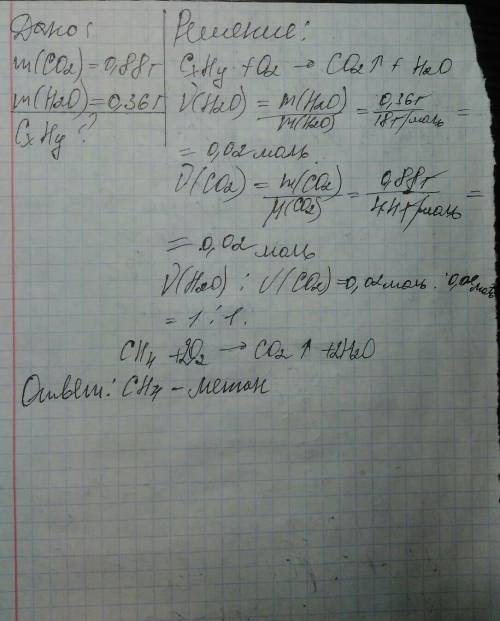 Дано:
m(CO2)=0,88г
m(H2O)=0,36г
CxHy ?
Решение:
CxHy + O2 → CO2↑ + H2O
ν(H2O) = m(H2O)/m(H2O) = 0,36г/18г/моль =
= 0,02 моль.
ν(CO2) = m(CO2)/M(CO2) = 0,88г/44г/моль =
= 0,02 моль
ν(H2O) : ν(CO2)=0,02моль : 0,02моль
= 1 : 1.
CH4 +2O2 → CO2↑ +2H2O
Ответ: CH4 – метан